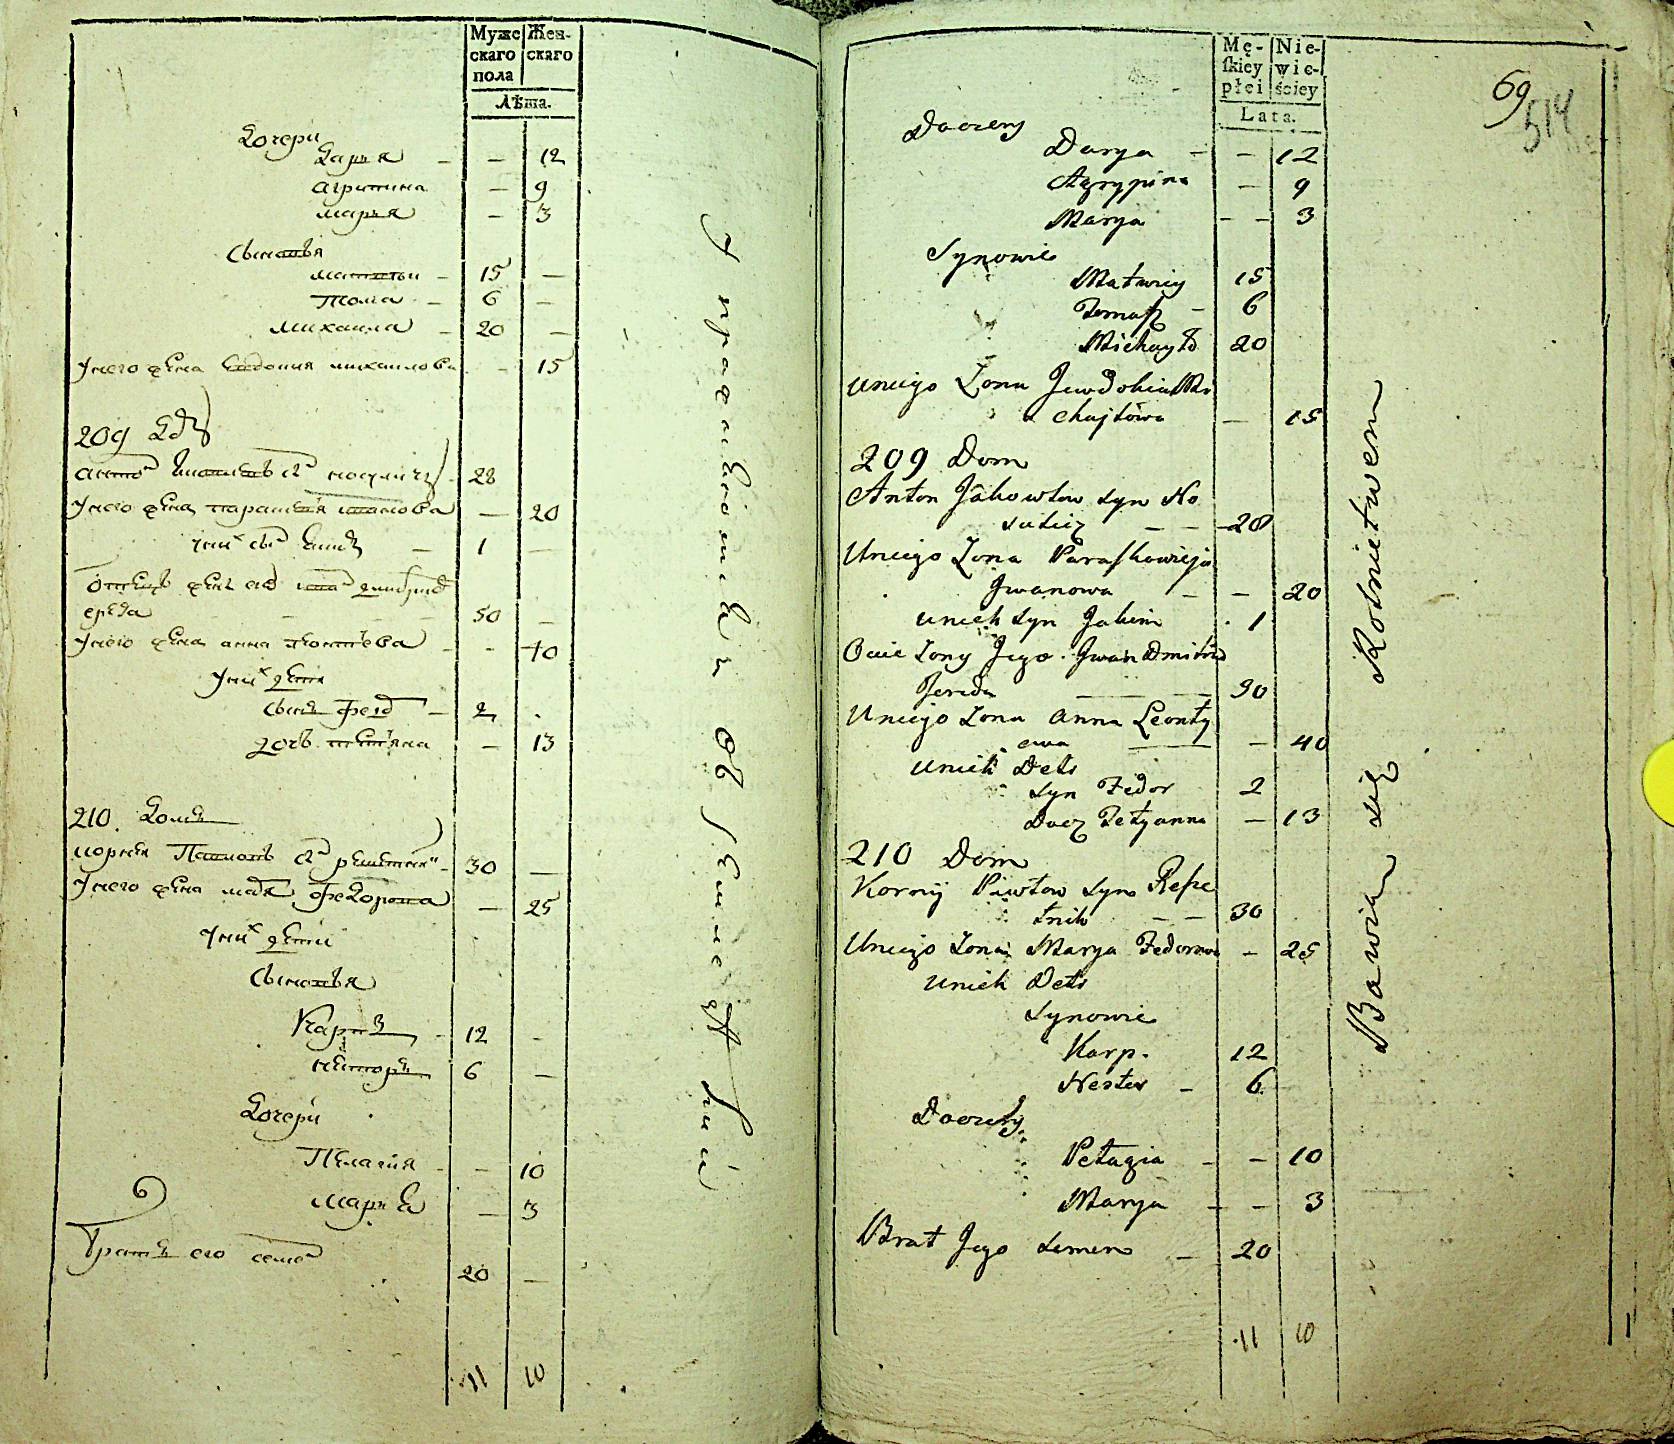 Муже
скаго
пола
Жен-
скаго
Лѣта.
Дочери
Дарья - - 12
Агрипина - 9
Марья - 3
Сыновья
Матвей - 15 -
Тома - 6 -
Михаила - 20 -
У него жена Евдокия Михайлова - 15
209 Дом
Антон 28
У него жена Иванова - 20
у них сын Еким - 1 -
50 -
У него жена Анна - 40
У них дети
сын Федор - 2
дочь Тетяна - 13
210. Домъ
Корней 30 -
У него жена Марья Федорова - 25
У них дети
Сыновья
Карпъ - 12 -
Несторъ 6 -
Дочери
Пелагия - - 10
Марья - 3
Братъ его Семен 20 -
11 10
Упражняются въ земледелии
Mę-
skiey
płci
Nie-
wie-
ściey
Lata.
69
514
Doczery
Darya - - 12
Agrypina - 9
Marya - - 3
Synowie
Matwiey 15
Tomasz - 6
Michayło 20
uniego Zona Jewdokia Mi
chayłowa - 15
209 Dom
Anton Jakowlow syn No
sulicz - - 28
Uniego Zona Paraskowieja
Jwanowa - - 20
unich syn Jakim 1
Ociec Zony Jego Jwan Dmitrow
Jereda 50
Uniego Zona Anna Leonty
ewa - 40
unich Deti
syn Fedor 2
Docz Tetyanna - 13
210 Dom
Korney Pawłow syn Resze
tnik - - 30
Uniego Zona Marya Fedorowa - 25
unich Deti
synowie
Karp. 12
Nester - 6
Doczery
Pełagia - - 10
Marya - - 3
Brat Jego Semen - 20
11 10
Bawią się Rolnictwem